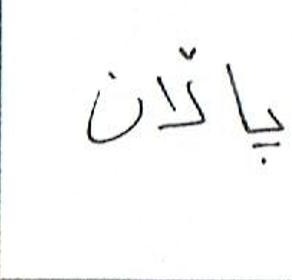 پاڵان